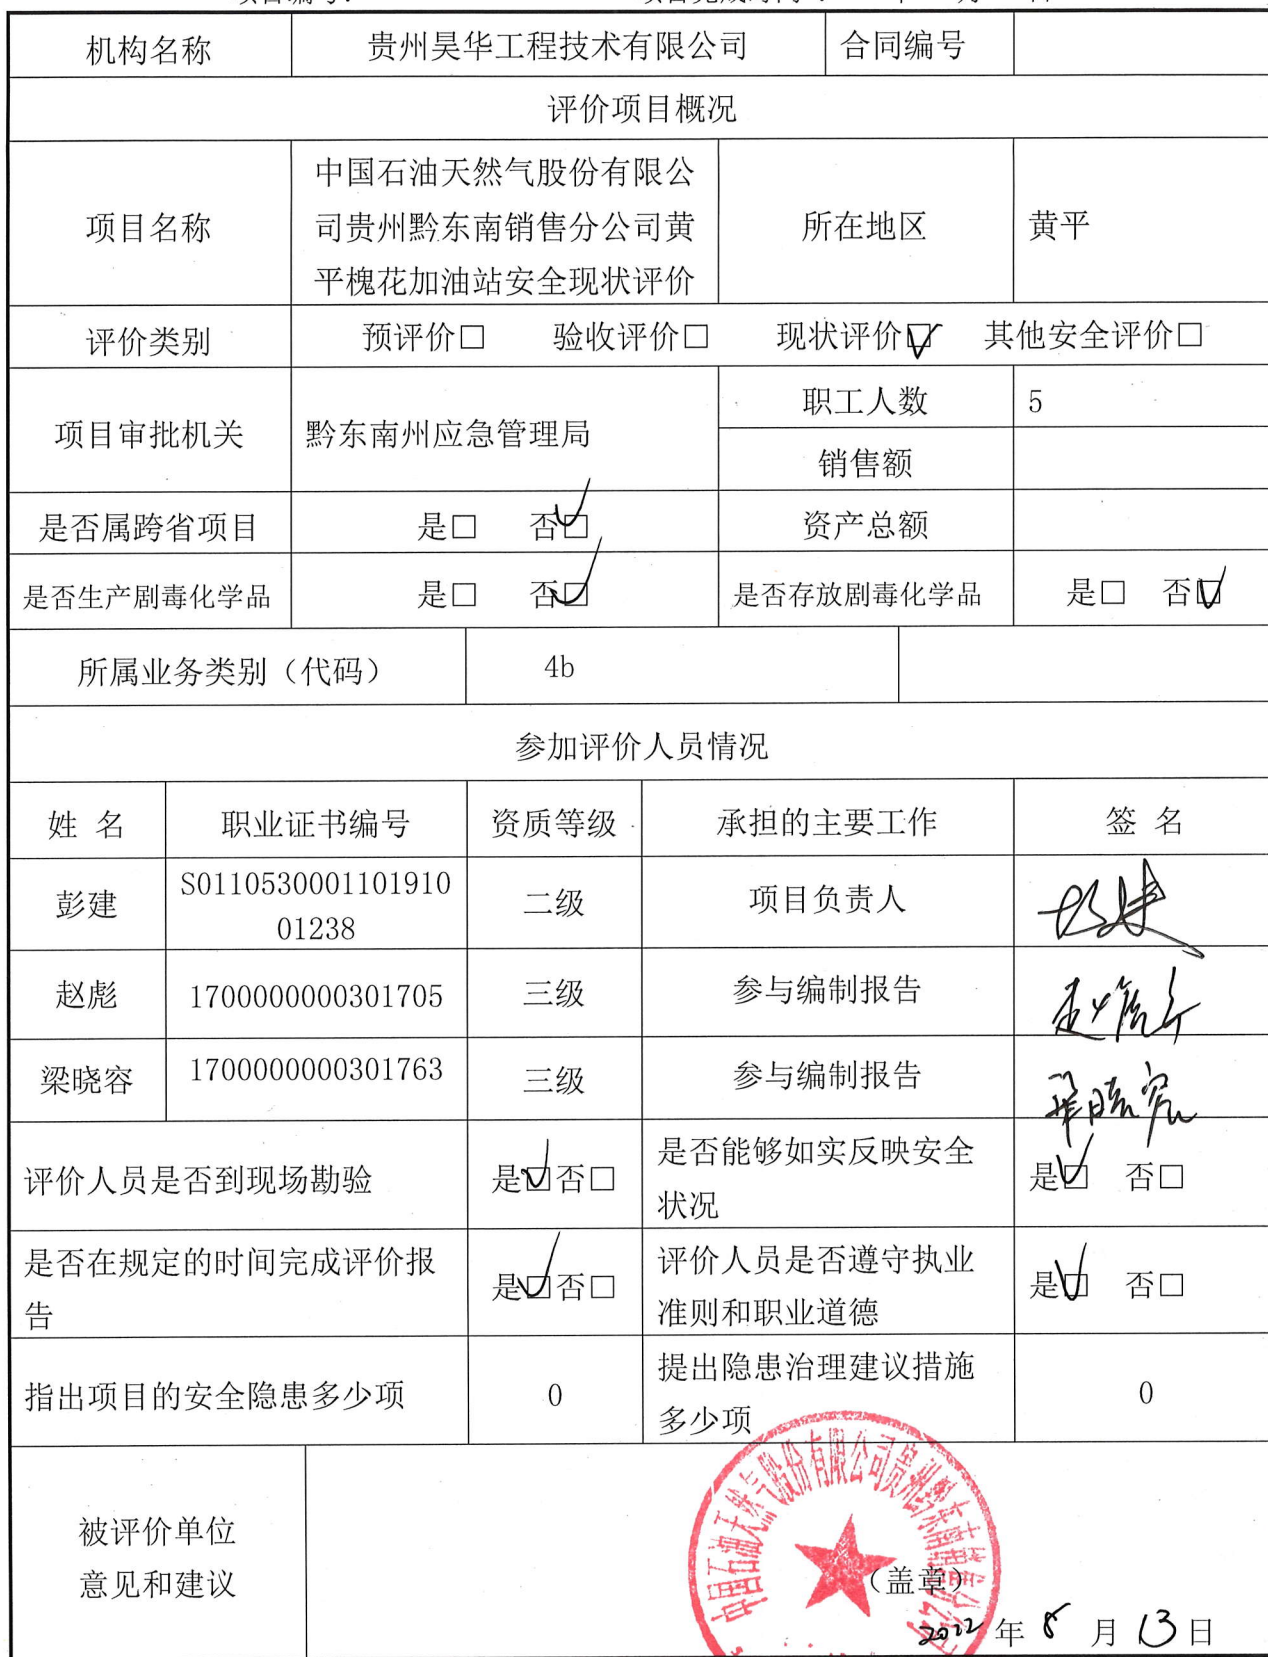 机构名称 贵州昊华工程技术有限公司 合同编号
评价项目概况
项目名称 中国石油天然气股份有限公
司贵州黔东南销售分公司黄
平槐花加油站安全现状评价 所在地区 黄平
评价类别 预评价□ 验收评价□ 现状评价☑ 其他安全评价□
项目审批机关 黔东南州应急管理局 职工人数 5
销售额
是否属跨省项目 是□ 否☑ 资产总额
是否生产剧毒化学品 是□ 否☑ 是否存放剧毒化学品 是□ 否☑
所属业务类别（代码） 4b
参加评价人员情况
姓 名 职业证书编号 资质等级 承担的主要工作 签 名
彭建 S0110530001101910
01238 二级 项目负责人 彭建
赵彪 1700000000301705 三级 参与编制报告 赵彪
梁晓容 1700000000301763 三级 参与编制报告 梁晓容
评价人员是否到现场勘验 是☑否□ 是否能够如实反映安全
状况 是☑ 否□
是否在规定的时间完成评价报
告 是☑否□ 评价人员是否遵守执业
准则和职业道德 是☑ 否□
指出项目的安全隐患多少项 0 提出隐患治理建议措施
多少项 0
中国石油天然气股份有限公司贵州黔东南销售分公司
被评价单位
意见和建议
（盖章）
2022 年 8 月 13 日